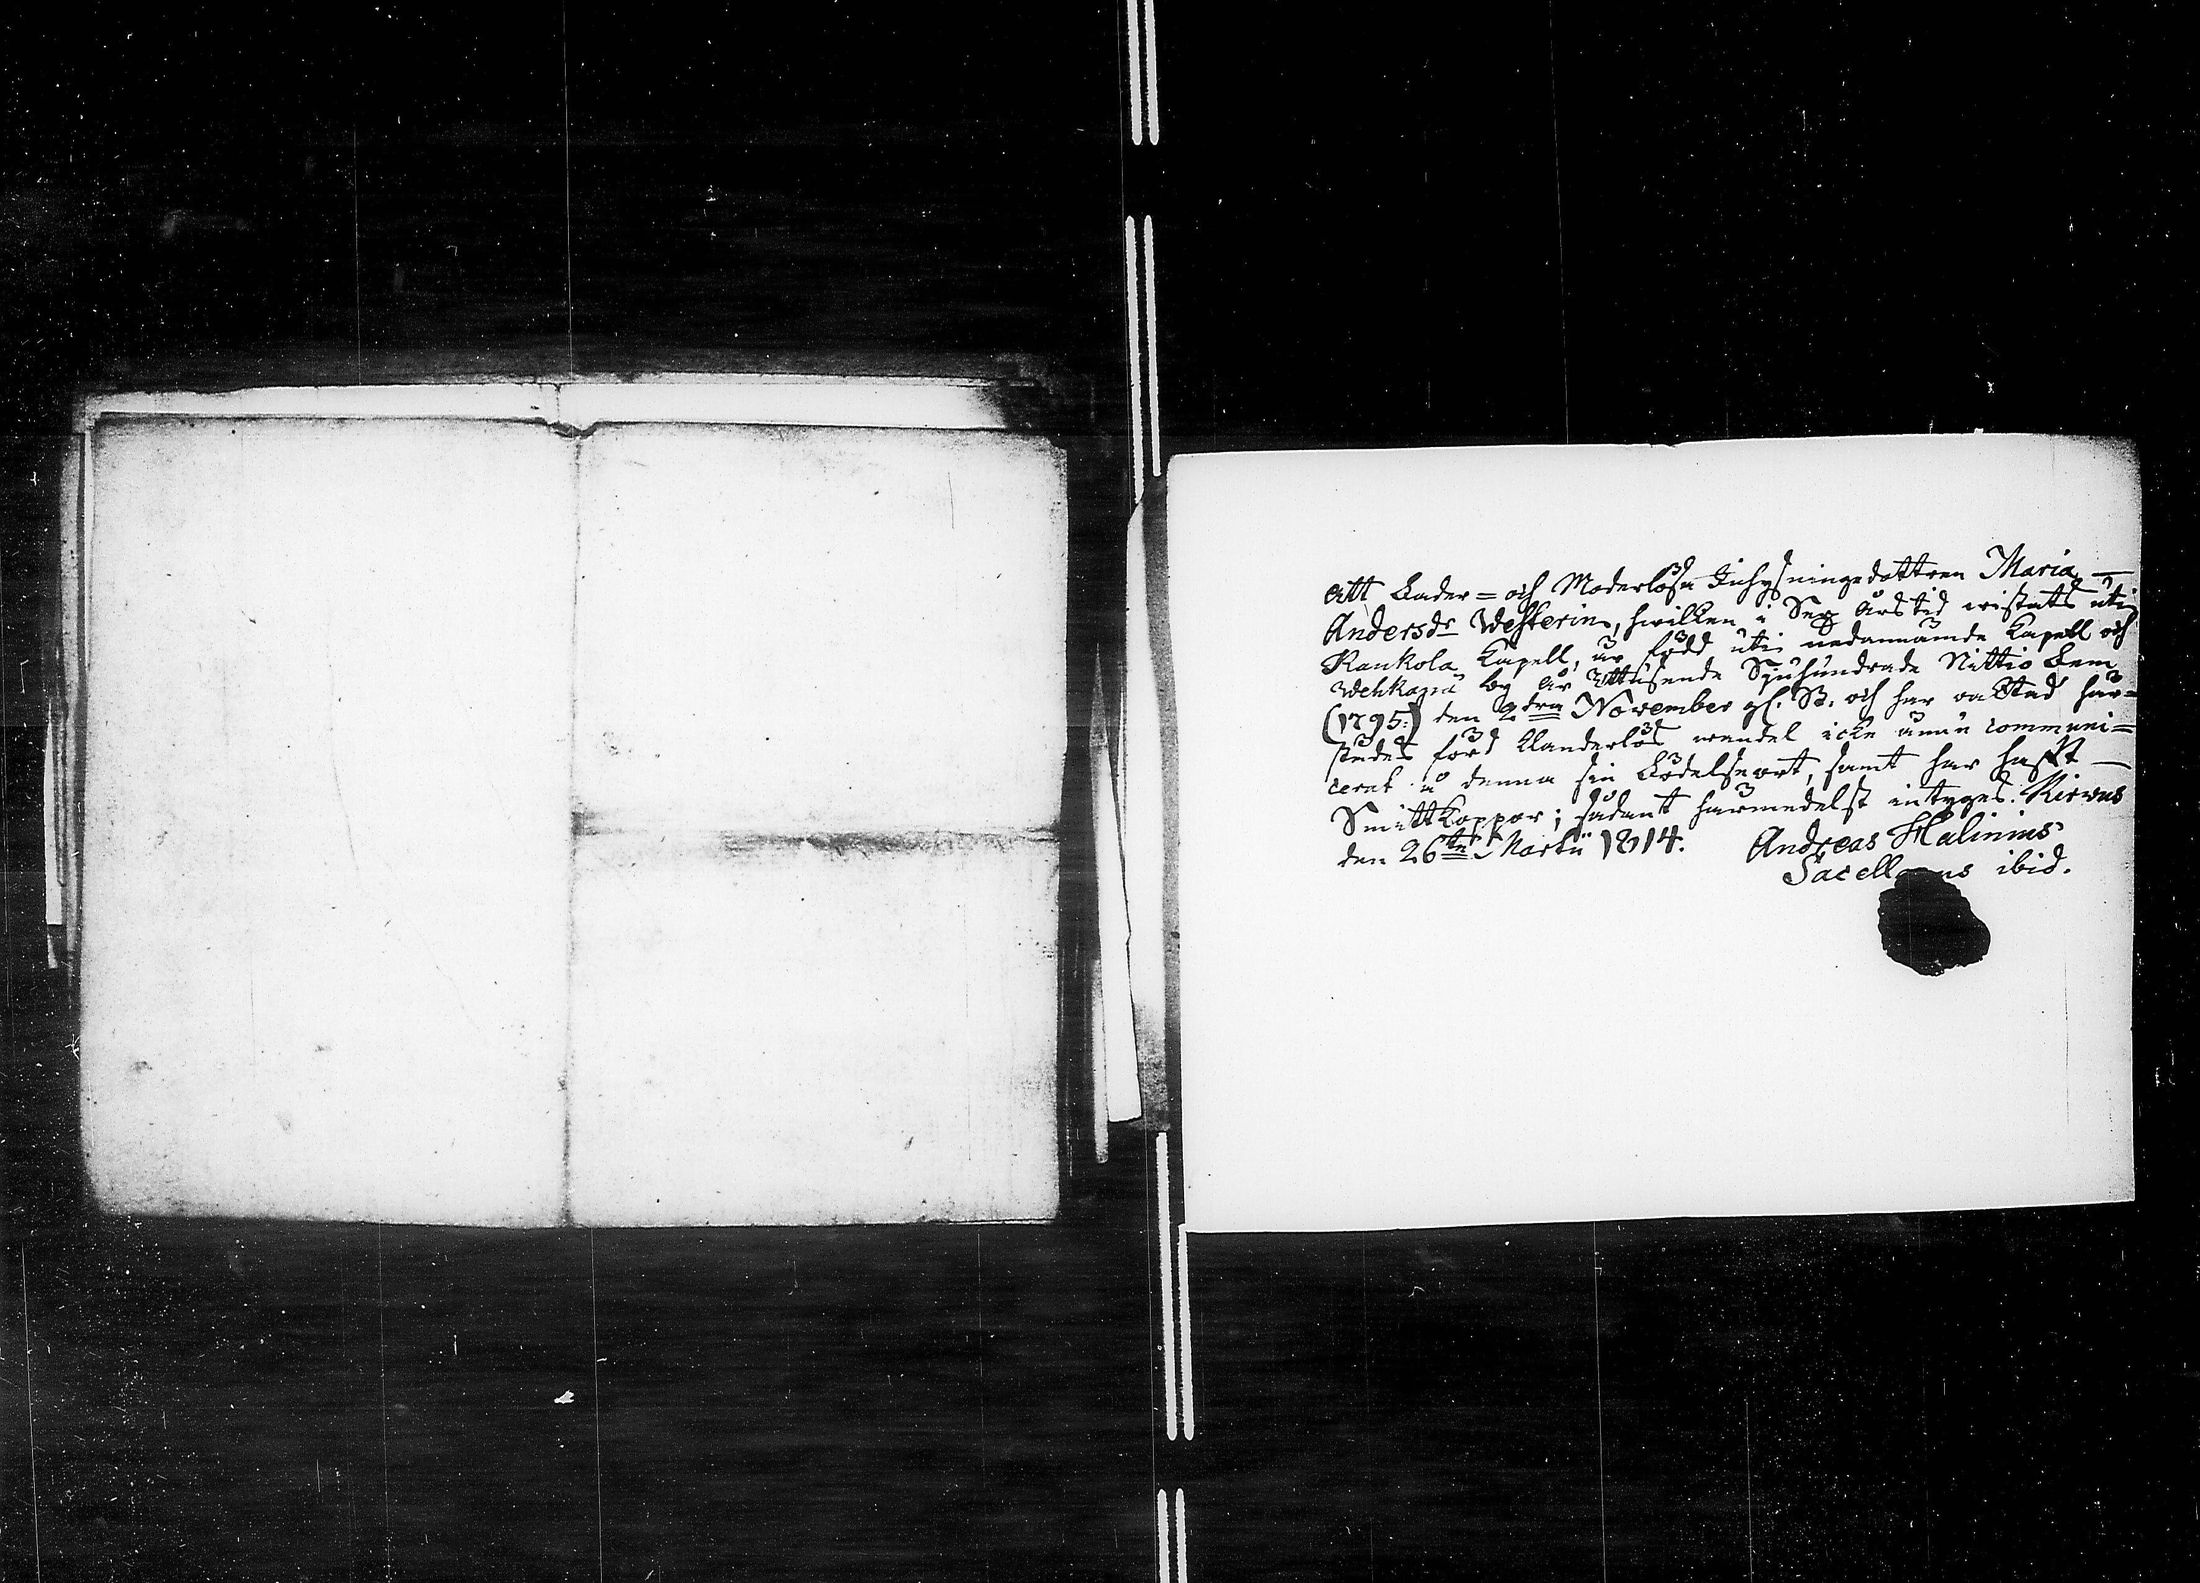 Att Fader= och Moderlösa Inhysningsdottren Maria
Andersdr Westerin, hwilken i Sex års tid wistats uti
Kaukola Kapell, är född uti nedannämde Kapell och
by år Ettusende Sjuhundrade Nittio Fem
(1795:) den 2dra November gl. St. och har wa Stad här=
städes förd Klanderlös wandel icke ännu communi=
cerat å denna sin Födelseort, samt har hafft
Smittkoppor; sådant härmedelst intyges. Kirvus
den 26te Martii 1814. Andreas Halinius
Sacellanus ibid.